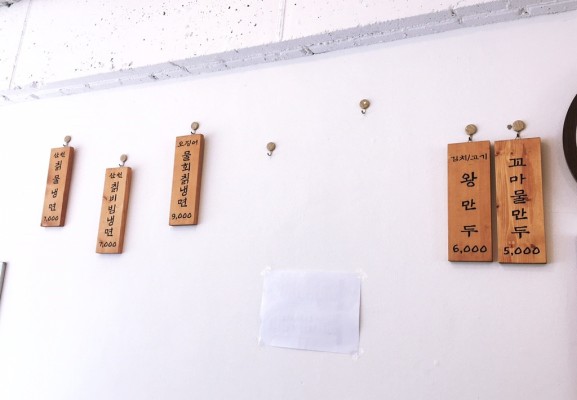 산원
칡물냉면
7,000
산원
칡비빔냉면
7,000
오징어
물회칡냉면
9,000
김치/고기
왕만두
6,000
꼬마물만두
5,000